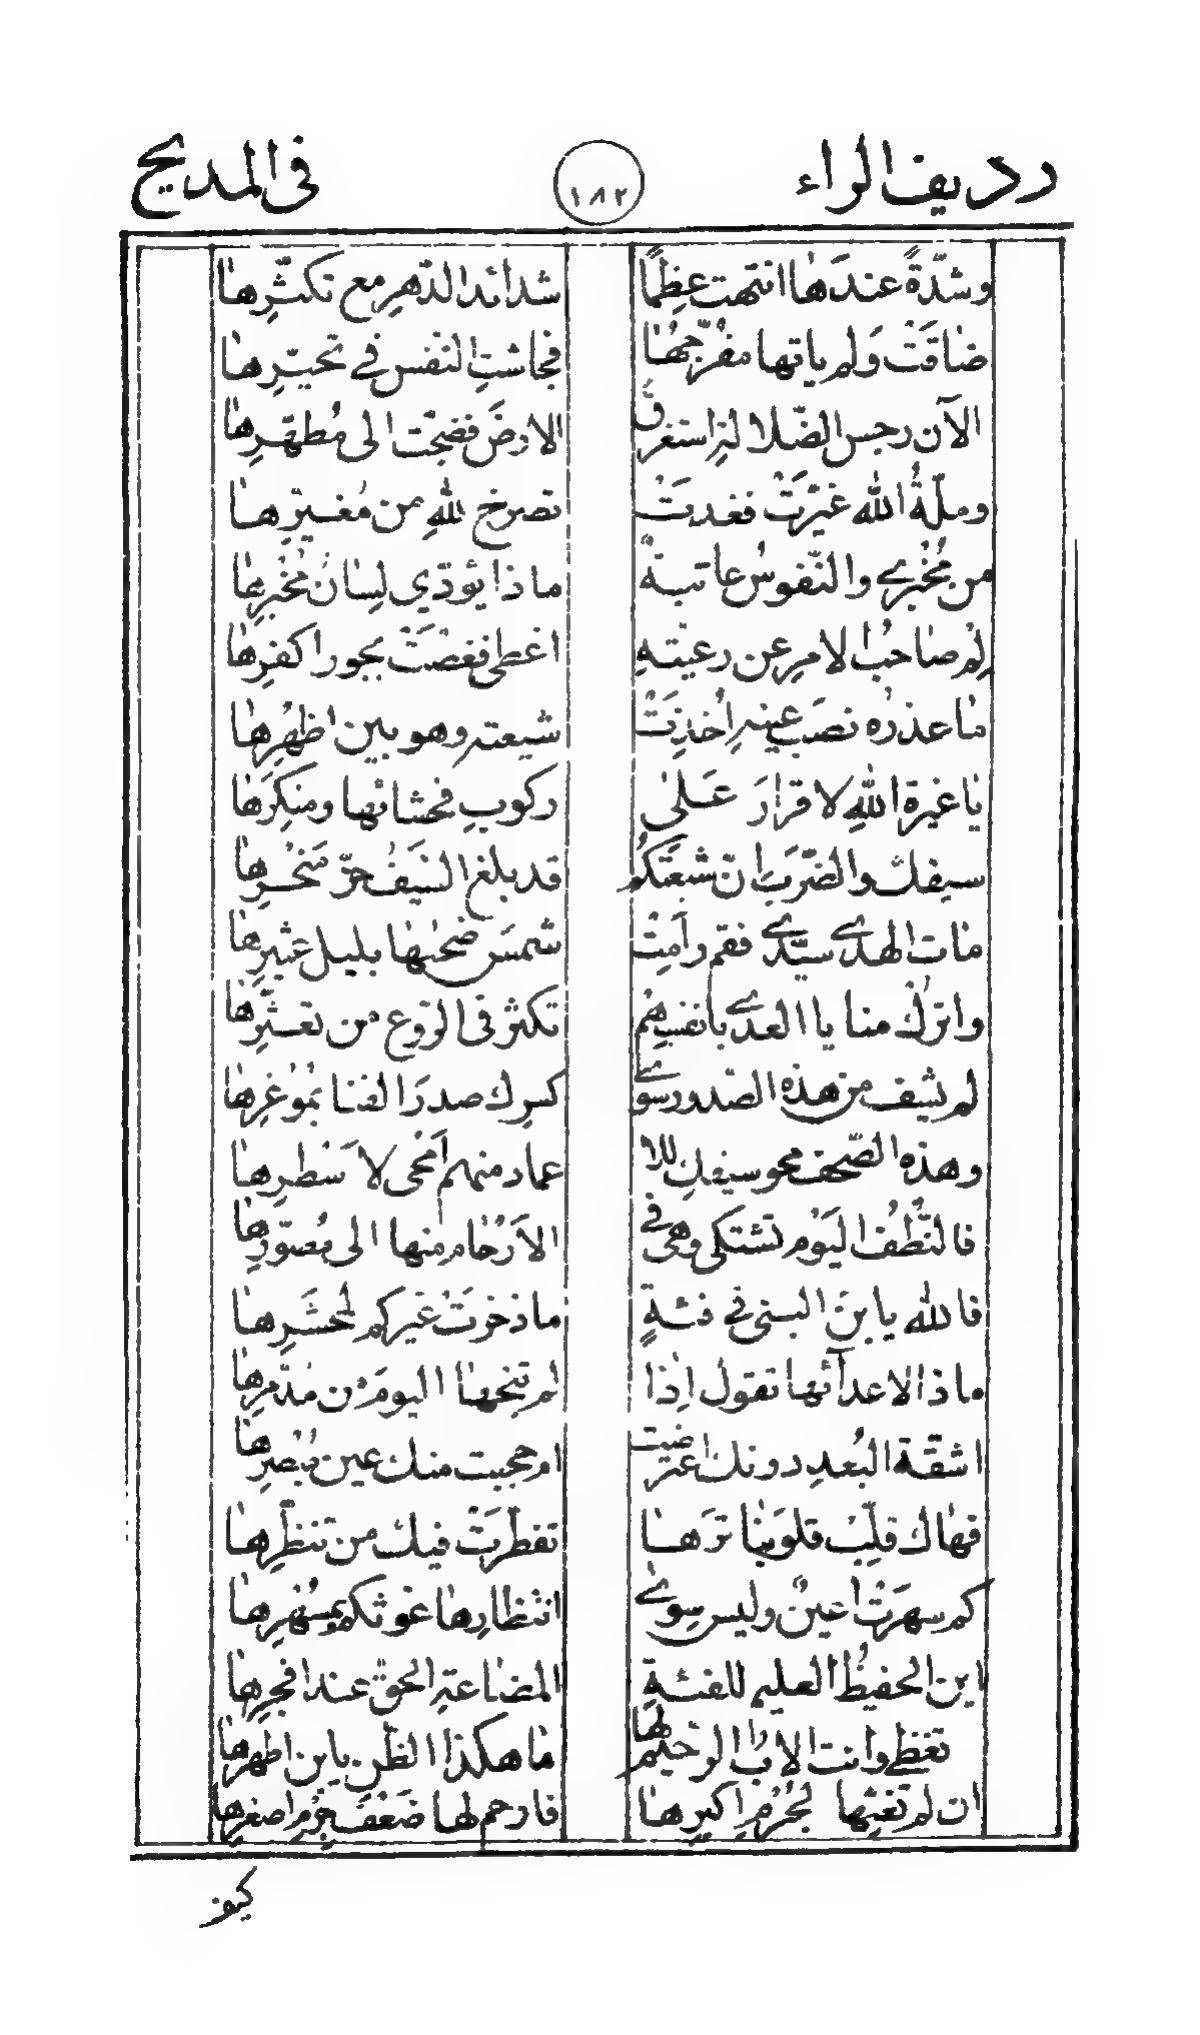 رديف الراء ١٨٢ في المديح
وشدّةً عندَها انتهت عِظماً شدائد الدّهرِ مع تكثّرِها
ضاقَتْ وَلم ياتها مفُرّجهُا فجاشتِ النفس في تحيّرِها
الآن رجس الضّلال استغرقَ الارضَ فضجّت الى مُطهّرِها
وملّةُ الله غيّرَتْ فغدتْ تصرخ للهِ من مُغيّرِها
من مُخْبري والنّفوسُ عاتبةً ماذا يؤدّي لِسانُ مخبرِها
لِمْ صاحبُ الامرِ عن رعيّتهِ اغطى فغضَتْ بجور اكفرِها
ما عذره نصَب عينهِ اُخذِتْ شيعته وهو بين اظهُرِها
يا غيرة اللهِ لا قرارَ عَلى ركوبِ فحشائها ومنكَرِها
سيفك والضّربَ انّ شيعَتكُم قد بلغ السّيَفُ حزّ مَنحُرِها
مات الهدى سيّدي فقم وامِتْ شمسَ ضحٰيها بليل عثيرِها
واترُك منايا العدى بانفسِهم تكثر فى الرّوع من تعثّرِها
لم يشف من هذه الصّدور سوى كسرِك صدرَ القنا بمُوغرِها
وهذه الصّحف محو سيفك للا عمار منهم اَمْحى لا سَطُرِها
فالنُّطُف اليَوْم تشتكي وهى في الاَرْحام منها الى مُصوّرِها
فالله يابنَ النبي في فئةٍ ما ذخرَتْ غيركم لمحشَرِها
ماذا لاعدآئها تقول اِذا لم تنجها اليومَ من مدّمرِها
اشقّة البُعدِ دونك اعترضت ام حجبت منك عين مُبْصرِها
فهاك قلِّبْ قلوبنا تَرَها تفطّرَتْ فيك من تنظّرِها
كم سهرَتْ اعينٌ وليس سوى انتظارِها غوثكم بمسُهرِها
اين الحفيظُ العليم للفئةِ المضاعةِ الحق عند افجرِها
تغظى وانت الابُ الرّحيم لها ما هكذا الظّن يابن اطهرِها
ان لم تغثها لجُرْمِ اكبرِها فارحم لها ضَعْفَ جرْمِ اصغرِها
كيف